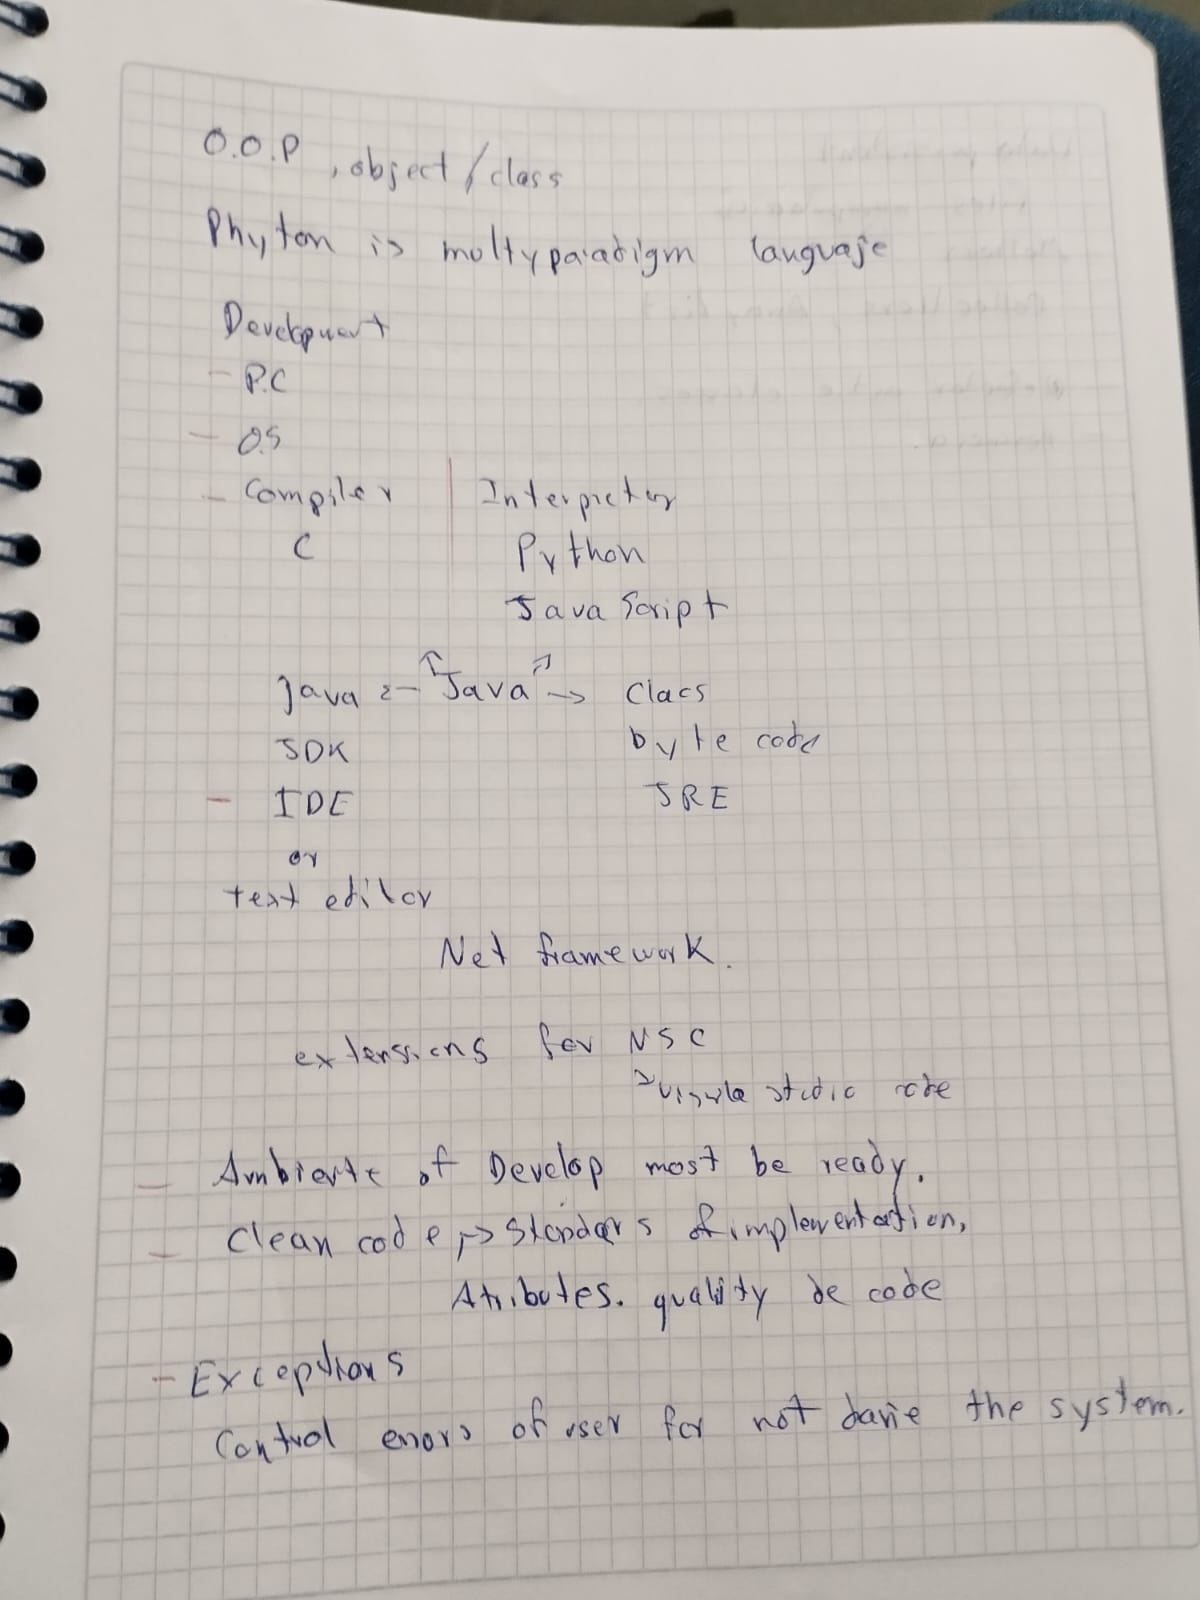 O.O.P , object / class
Phyton is moltyparadigm languaje
Development
- P.C
- O.S
- Compiler | Interpreter
C Python
Java Script
Java "Java" → Class
JDK byte code
- IDE JRE
or
text editor
Net framework.
extenssions for
studio code
- Ambiente of Develop most be ready.
- Clean code, → Standars of implementation,
Atributes. quality de code
- Exceptions
Control errors of user for not the system.